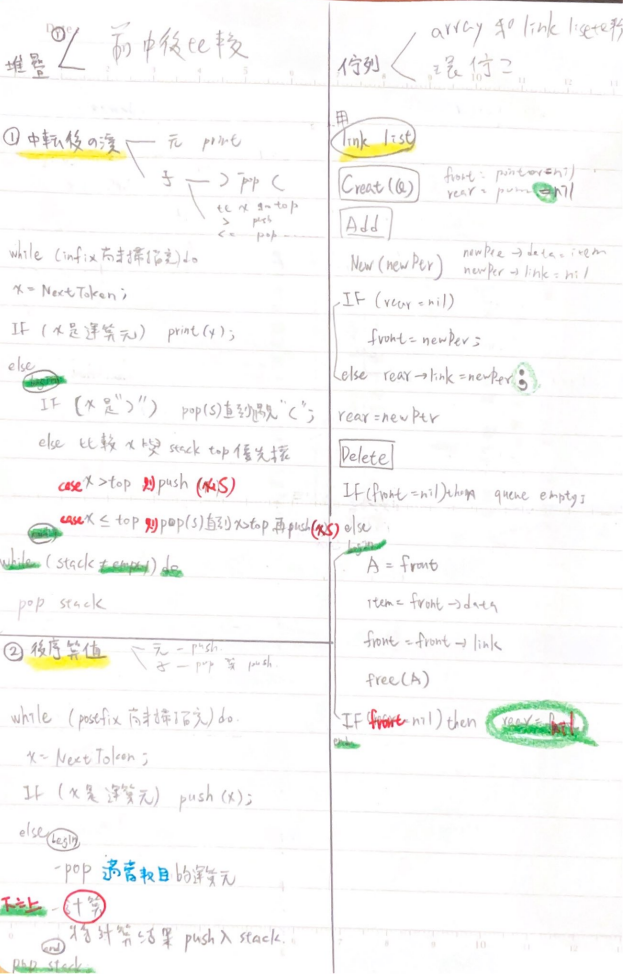 堆疊 ① 前中後比較
① 中転後の渡 — 元 print
子 → ) pop (
比 x 和 top
> push
<= pop
while (infix 尚未掃描完) do
x = NextToken;
IF (x是運算元) print(x);
else
begin
IF (x是")") pop(s)直到遇見"(";
else 比較 x 與 stack top 優先權
case x > top 則 push (x,S)
case x ≤ top 則 pop(s)直到 x>top 再 push(x,S)
end
while (stack ≠ empty) do
pop stack
② 後序算值 — 元 - push
子 - pop 算 push
while (postfix 尚未掃描完) do
x = NextToken;
IF (x是運算元) push(x);
else begin
-pop 適當數目的運算元
- 計算
將計算結果 push入 stack.
end
pop stack
佇列 array 和 link list比較
環佇二
用
link list
Creat(Q) front: pointer=nil
rear = =nil
Add
New(newPtr) newPtr→data=item
newPtr→link=nil
IF (rear=nil)
front=newPtr;
else rear→link=newPtr;
rear=newPtr
Delete
IF(front=nil)then queue empty;
else
begin
A = front
item=front→data
front=front→link
free(A)
IF (front=nil) then rear=nil
end